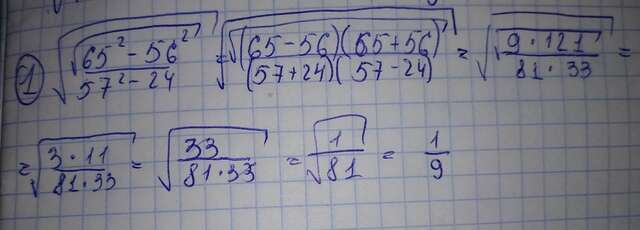 1) √(√(65² - 56²) / (57² - 24)) = √(√((65-56)(65+56)) / ((57+24)(57-24))) = √(√(9·121) / (81·33)) =
= √((3·11) / (81·33)) = √(33 / (81·33)) = √(1/81) = 1/9